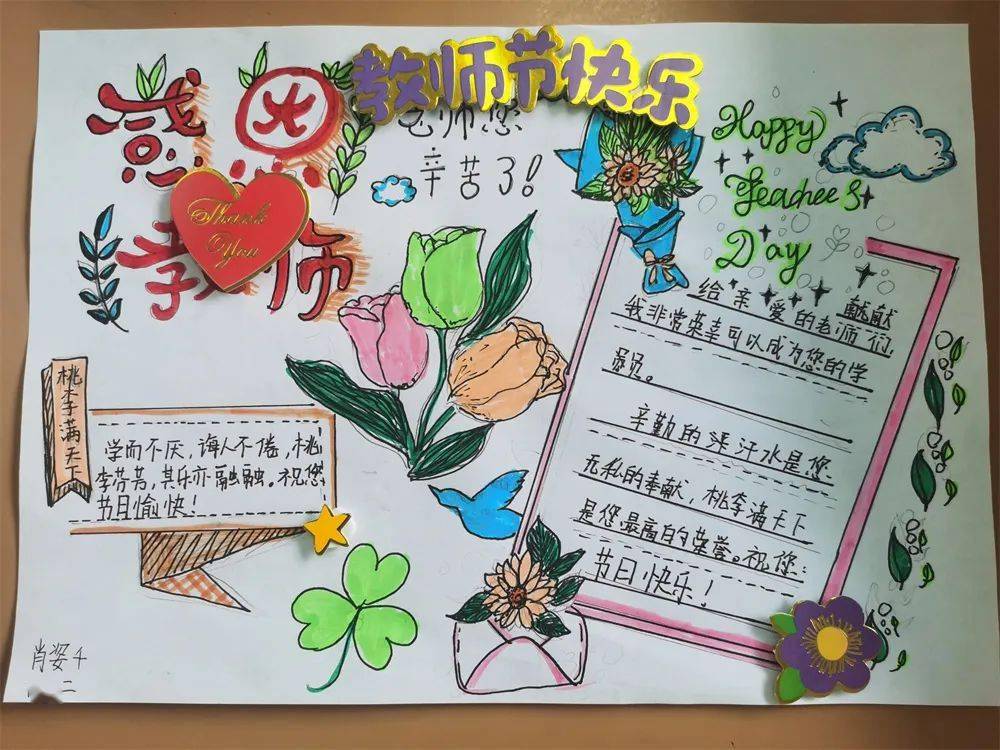 教师节快乐
感恩
教师
Thank
You
老师您
辛苦了!
Happy
Teachee's
Day
给亲爱的老师们
献献
我非常荣幸可以成为您的学
员。
辛勤的汗水是您
无私的奉献,桃李满天下
是您最高的荣誉。祝您:
节日快乐!
桃李满天下
学而不厌,诲人不倦,桃
李芬芳,其乐亦融融。祝您
节日愉快!
肖姿千
二